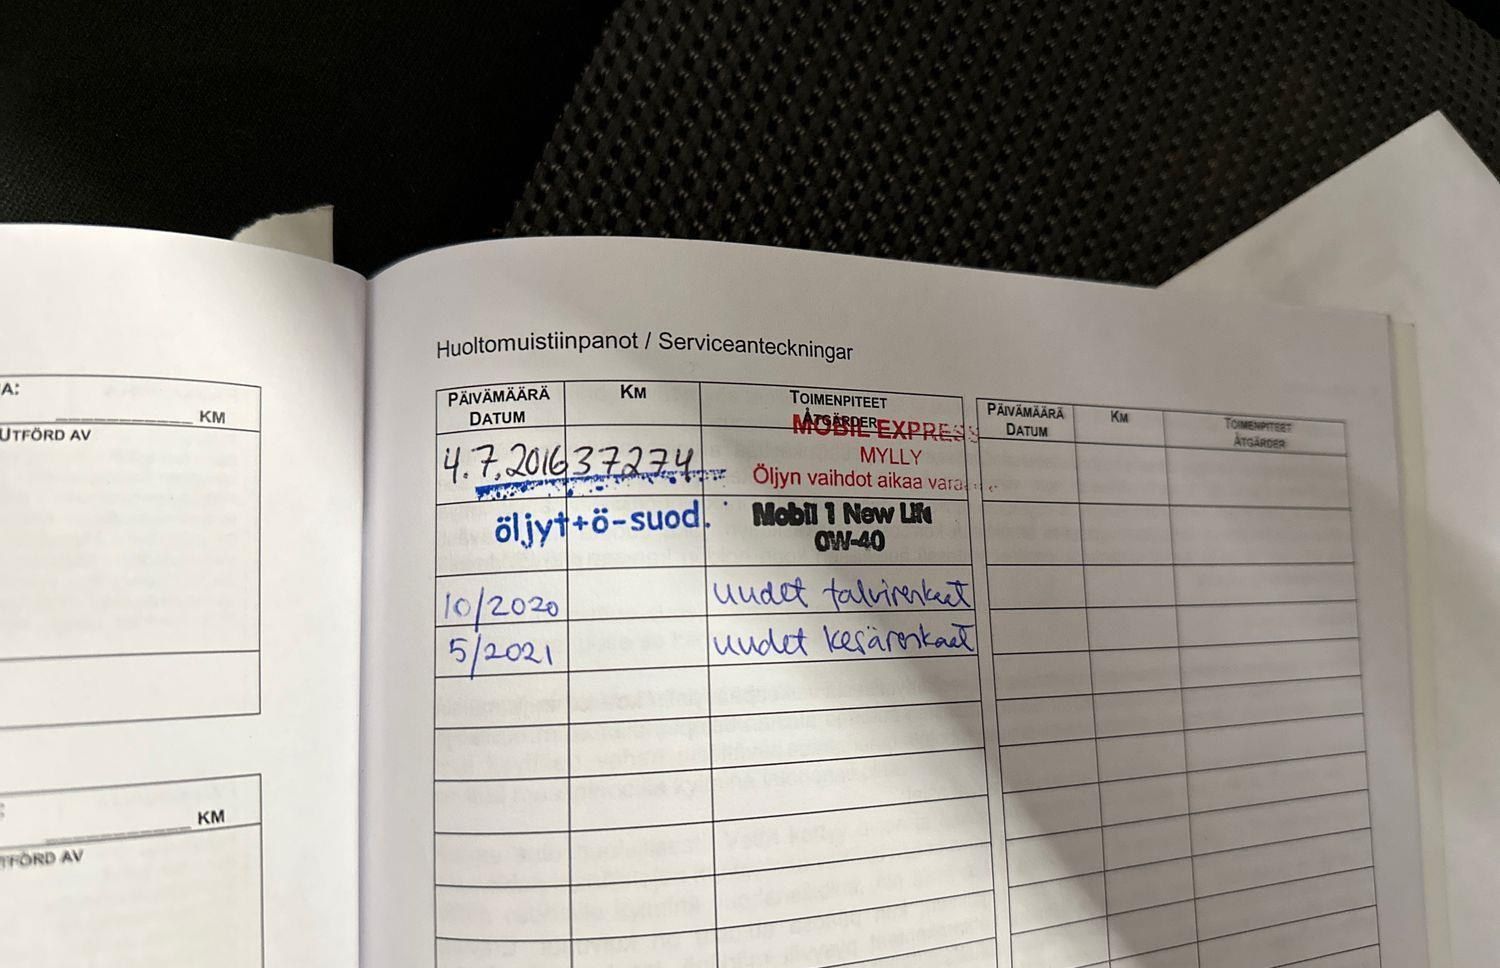 A:
KM
UTFÖRD AV
KM
TFÖRD AV
Huoltomuistiinpanot / Serviceanteckningar
PÄIVÄMÄÄRÄ DATUM
KM
TOIMENPITEET ÅTGÄRDER
PÄIVÄMÄÄRÄ DATUM
KM
TOIMENPITEET ÅTGÄRDER
4.7.2016 37274
MOBIL EXPRESS
MYLLY
Öljyn vaihdot aikaa vara
öljyt+ö-suod.
Mobil 1 New Life
0W-40
10/2020 uudet talvirenkaat
5/2021 uudet kesärenkaat